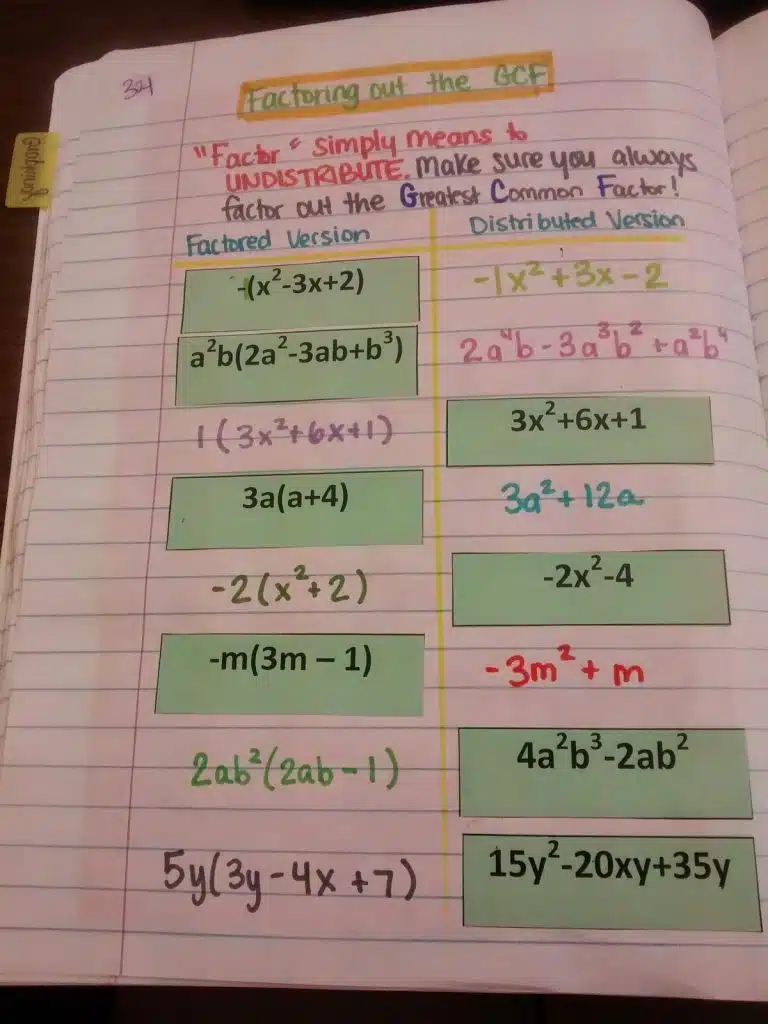 321
Factoring out the GCF
"Factor" simply means to
UNDISTRIBUTE. Make sure you always
factor out the Greatest Common Factor!
Factored Version
Distributed Version
-(x²-3x+2)
-1x²+3x-2
a²b(2a²-3ab+b³)
2a⁴b-3a³b²+a²b⁴
1(3x²+6x+1)
3x²+6x+1
3a(a+4)
3a²+12a
-2(x²+2)
-2x²-4
-m(3m – 1)
-3m²+m
2ab²(2ab-1)
4a²b³-2ab²
5y(3y-4x+7)
15y²-20xy+35y